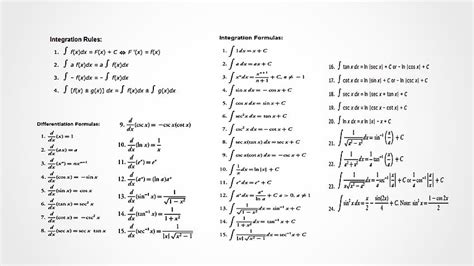 Integration Rules:
1. ∫ f(x)dx = F(x) + C ⇔ F '(x) = f(x)
2. ∫ a f(x)dx = a ∫ f(x)dx
3. ∫ − f(x)dx = − ∫ f(x)dx
4. ∫ [f(x) ± g(x)] dx = ∫ f(x)dx ± ∫ g(x)dx
Differentiation Formulas:
1. d/dx (x) = 1
2. d/dx (ax) = a
3. d/dx (xⁿ) = nxⁿ⁻¹
4. d/dx (cos x) = − sin x
5. d/dx (sin x) = cos x
6. d/dx (tan x) = sec² x
7. d/dx (cot x) = − csc² x
8. d/dx (sec x) = sec x tan x
9. d/dx (csc x) = − csc x(cot x)
10. d/dx (ln x) = 1/x
11. d/dx (eˣ) = eˣ
12. d/dx (aˣ) = (ln a)aˣ
13. d/dx (sin⁻¹ x) = 1/√(1 − x²)
14. d/dx (tan⁻¹ x) = 1/(1 + x²)
15. d/dx (sec⁻¹ x) = 1/(|x| √(x² − 1))
Integration Formulas:
1. ∫ 1 dx = x + C
2. ∫ a dx = ax + C
3. ∫ xⁿ dx = xⁿ⁺¹/(n + 1) + C, n ≠ −1
4. ∫ sin x dx = − cos x + C
5. ∫ cos x dx = sin x + C
6. ∫ sec² x dx = tan x + C
7. ∫ csc² x dx = − cot x + C
8. ∫ sec x(tan x) dx = sec x + C
9. ∫ csc x(cot x) dx = − csc x + C
10. ∫ 1/x dx = ln |x| + C
11. ∫ eˣ dx = eˣ + C
12. ∫ aˣ dx = aˣ/ln a + C a > 0, a ≠ 1
13. ∫ 1/√(1 − x²) dx = sin⁻¹ x + C
14. ∫ 1/(1 + x²) dx = tan⁻¹ x + C
15. ∫ 1/(|x| √(x² − 1)) dx = sec⁻¹ x + C
16. ∫ tan x dx = ln |sec x| + C or − ln |cos x| + C
17. ∫ cot x dx = ln |sin x| + C or − ln |csc x| + C
18. ∫ sec x dx = ln |sec x + tan x| + C
20. ∫ ln x dx = x ln |x| − x + C